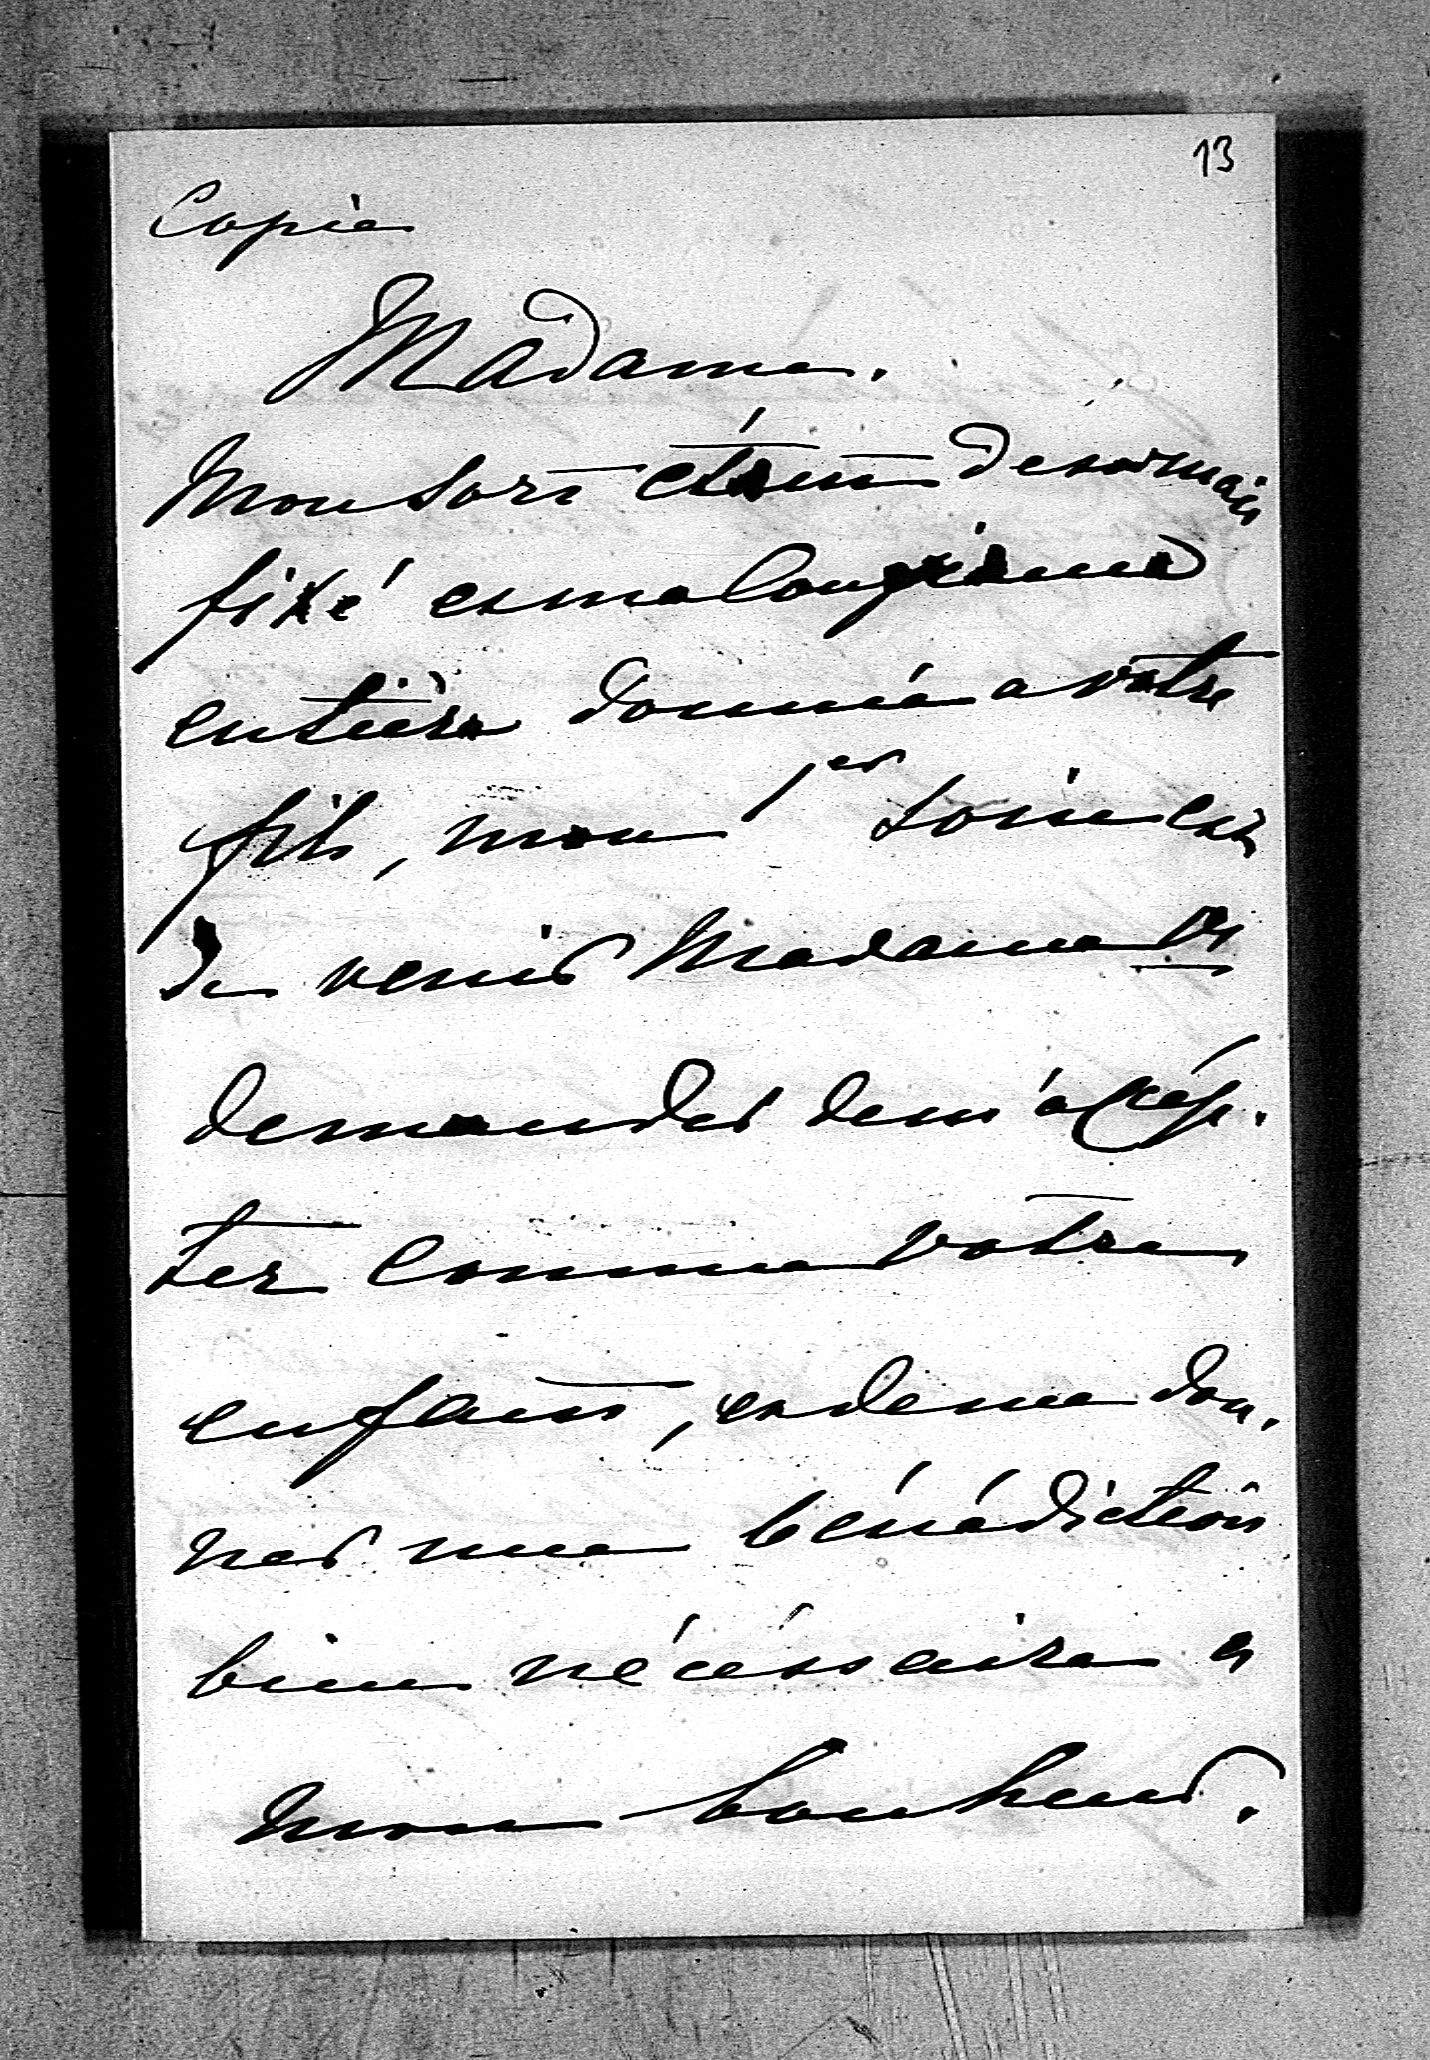 13
Copie
Madame.
Mon sort étant désormais
fixé et ma
entière donnée a votre
fils, mon 1er soin est
de venir Madame
demander de m'accép-
ter comme votre
enfant, et de me don-
ner une bénédiction
bien nécéssaire a
mon bonheur.